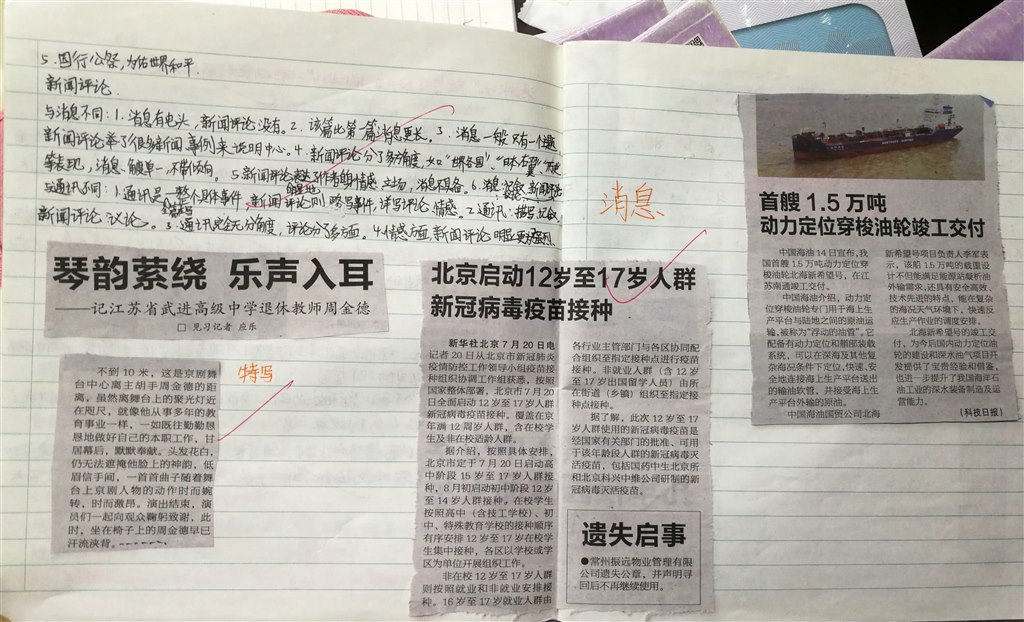 5.国行公祭,为佑世界和平.
新闻评论.
与消息不同:1.消息有电头,新闻评论没有。2.该篇比第一篇消息更长。3.消息一般只有一个
新闻评论举了很多新闻事例来说明中心。4.新闻评论分了多角度,如
等表现,消息单一,不带倾向。5.新闻评论表达了作者的情感、立场,消息不具备。6.消息
与通讯不同:1.通讯是一整个具体事件,新闻评论则略写事件,详写评论、情感。2.通讯:描写、记叙
新闻评论:议论。3.通讯完全无分角度,评论分多方面。4.情感方面,新闻评论明显更强烈.
琴韵萦绕 乐声入耳
——记江苏省武进高级中学退休教师周金德
□ 见习记者 应乐
特写
不到10米,这是京剧舞
台中心离主胡手周金德的距
离,虽然离舞台上的聚光灯近
在咫尺,就像他从事多年的教
育事业一样,一如既往勤勤恳
恳地做好自己的本职工作,甘
居幕后,默默奉献。头发花白,
仍无法遮掩他脸上的神韵,低
眉信手间,一首首曲子随着舞
台上京剧人物的动作时而婉
转,时而激昂。演出结束,演
员们一起向观众鞠躬致谢,此
时,坐在椅子上的周金德早已
汗流浃背。
消息
北京启动12岁至17岁人群
新冠病毒疫苗接种
新华社北京7月20日电
记者20日从北京市新冠肺炎
疫情防控工作领导小组疫苗接
种组织协调工作组获悉,按照
国家整体部署,北京市7月20
日全面启动12岁至17岁人群
新冠病毒疫苗接种。覆盖在京
年满12周岁人群,含在校学
生及非在校适龄人群。
据介绍,按照具体安排,
北京市定于7月20日启动高
中阶段15岁至17岁人群接
种,8月初启动初中阶段12岁
至14岁人群接种。在校学生
按照高中(含技工学校)、初
中、特殊教育学校的接种顺序
有序安排12岁至17岁在校学
生集中接种,各区以学校或学
区为单位开展组织工作。
非在校12岁至17岁人群
则按照就业和非就业安排接
种。16岁至17岁就业人群由
各行业主管部门与各区协同配
合组织至指定接种点进行疫苗
接种。非就业人群(含12岁
至17岁出国留学人员)由所
在街道(乡镇)组织至指定接
种点接种。
据了解,此次12岁至17
岁人群使用的新冠病毒疫苗是
经国家有关部门的批准、可用
于该年龄段人群的新冠病毒灭
活疫苗,包括国药中生北京所
和北京科兴中维公司研制的新
冠病毒灭活疫苗。
遗失启事
●常州振远物业管理有限
公司遗失公章,并声明寻
回后不再继续使用。
首艘1.5万吨
动力定位穿梭油轮竣工交付
中国海油14日宣布,我
国首艘1.5万吨动力定位穿
梭油轮北海新希望号,在江
苏南通竣工交付。
中国海油介绍,动力定
位穿梭油轮专门用于海上生
产平台与陆地之间的原油运
输,被称为“浮动的油管”。它
配备有动力定位和艏部装载
系统,可以在深海及其他复
杂海况条件下定位,快速、安
全地连接海上生产平台送出
的输油软管,并接受海上生
产平台外输的原油。
中国海油国贸公司北海
新希望号项目负责人李军表
示,该船1.5万吨的载重设
计不但能满足能源站凝析油
外输需求,还具有安全高效、
技术先进的特点,能在复杂
的海况天气环境下,快速反
应生产作业的调度安排。
北海新希望号的竣工交
付,为今后国内动力定位油
轮的建设和深水油气项目开
发提供了宝贵经验和借鉴,
也进一步提升了我国海洋石
油工业的深水装备制造及运
营能力。
(科技日报)